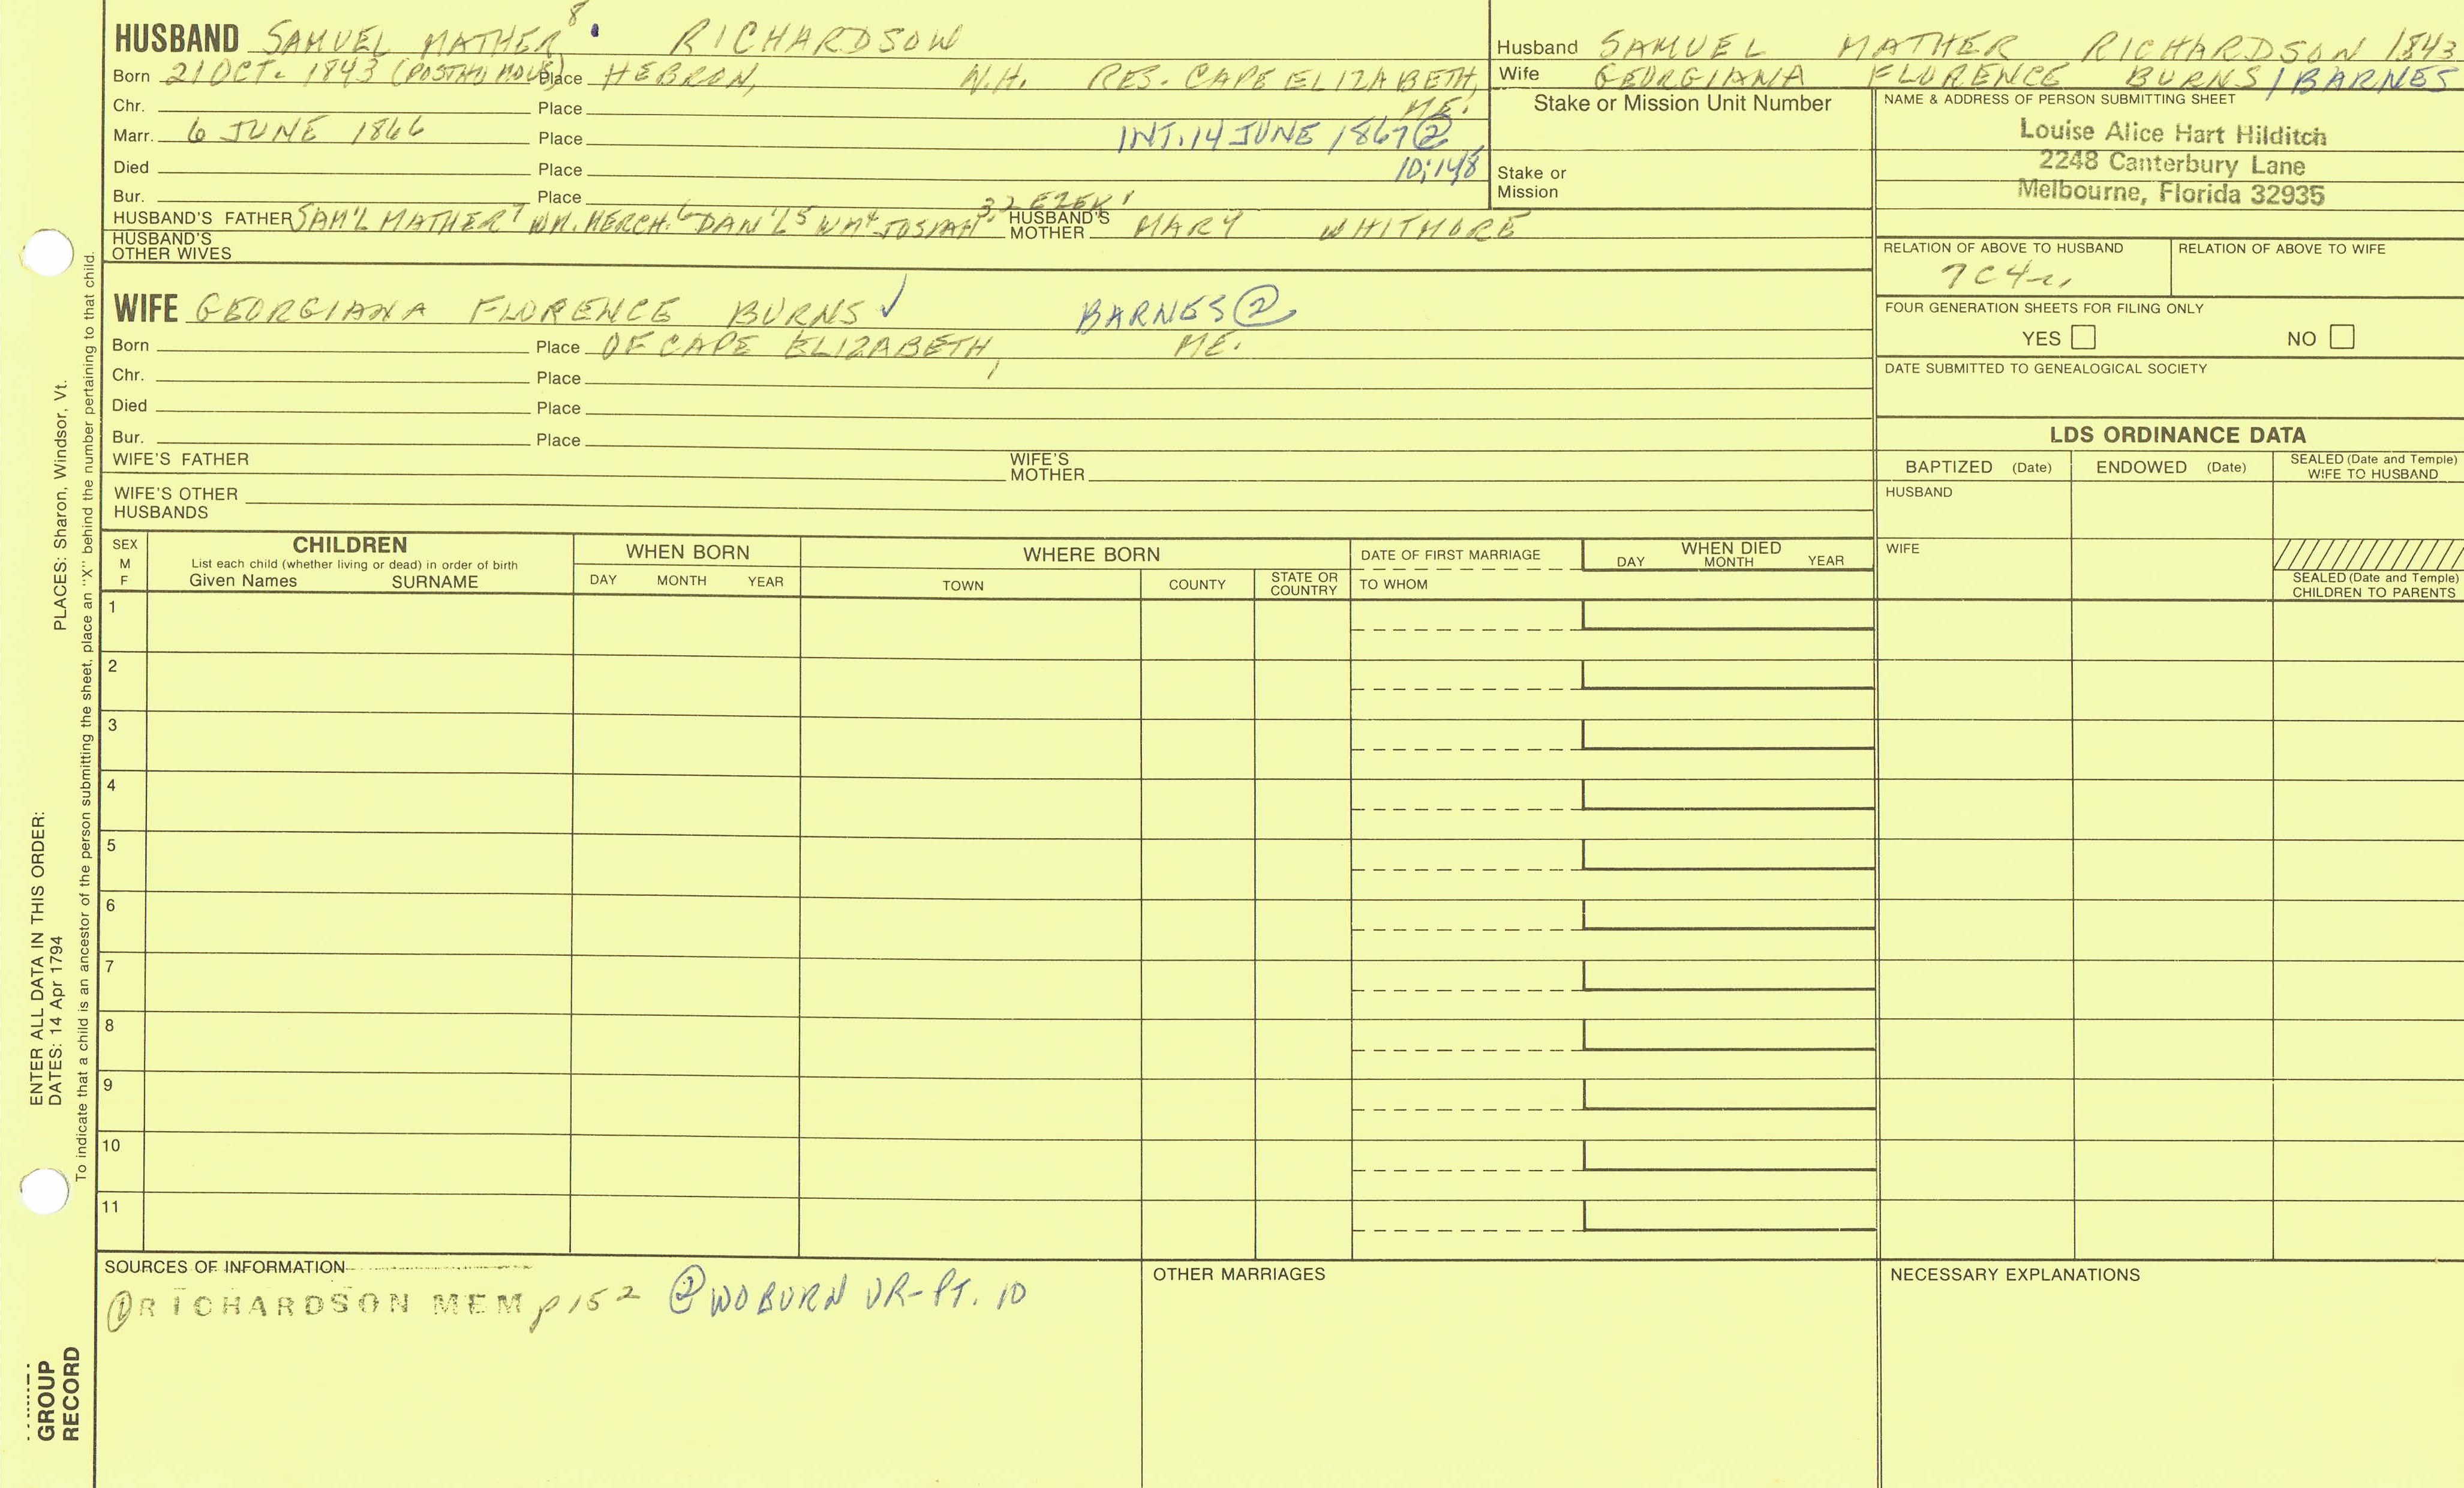 8
HUSBAND SAMUEL MATHER RICHARDSON
Born 21 OCT. 1843 Place HEBRON, N.H. RES. CAPE ELIZABETH, ME.
Chr. Place
Marr. 6 JUNE 1866 Place INT. 14 JUNE 1867 ②
Died Place 10:148
Bur. Place
HUSBAND'S FATHER SAM'L MATHER 7 WM. MERCH. 6 DAN'L 5 WM 4 JOSIAH 3, 2 EZEK 1 HUSBAND'S MOTHER MARY WHITMORE
HUSBAND'S OTHER WIVES
WIFE GEORGIANA FLORENCE BURNS ✓ BARNES ②
Born Place OF CAPE ELIZABETH, ME.
Chr. Place
Died Place
Bur. Place
WIFE'S FATHER WIFE'S MOTHER
WIFE'S OTHER HUSBANDS
Husband SAMUEL MATHER RICHARDSON 1843
Wife GEORGIANA FLORENCE BURNS / BARNES
Stake or Mission Unit Number
Stake or
Mission
NAME & ADDRESS OF PERSON SUBMITTING SHEET
Louise Alice Hart Hilditch
2248 Canterbury Lane
Melbourne, Florida 32935
RELATION OF ABOVE TO HUSBAND RELATION OF ABOVE TO WIFE
7C4r.
FOUR GENERATION SHEETS FOR FILING ONLY
YES NO
DATE SUBMITTED TO GENEALOGICAL SOCIETY
LDS ORDINANCE DATA
BAPTIZED (Date) ENDOWED (Date) SEALED (Date and Temple) WIFE TO HUSBAND
HUSBAND
WIFE
SEALED (Date and Temple)
CHILDREN TO PARENTS
SEX M F
CHILDREN
List each child (whether living or dead) in order of birth
Given Names SURNAME
WHEN BORN
DAY MONTH YEAR
WHERE BORN
TOWN COUNTY STATE OR COUNTRY
DATE OF FIRST MARRIAGE
TO WHOM
WHEN DIED
DAY MONTH YEAR
1
2
3
4
5
6
7
8
9
10
11
SOURCES OF INFORMATION
① RICHARDSON MEM p 152 ② WOBURN VR-PT. 10
OTHER MARRIAGES
NECESSARY EXPLANATIONS
ENTER ALL DATA IN THIS ORDER:
DATES: 14 Apr 1794 PLACES: Sharon, Windsor, Vt.
To indicate that a child is an ancestor of the person submitting the sheet, place an "X" behind the number pertaining to that child.
GROUP
RECORD